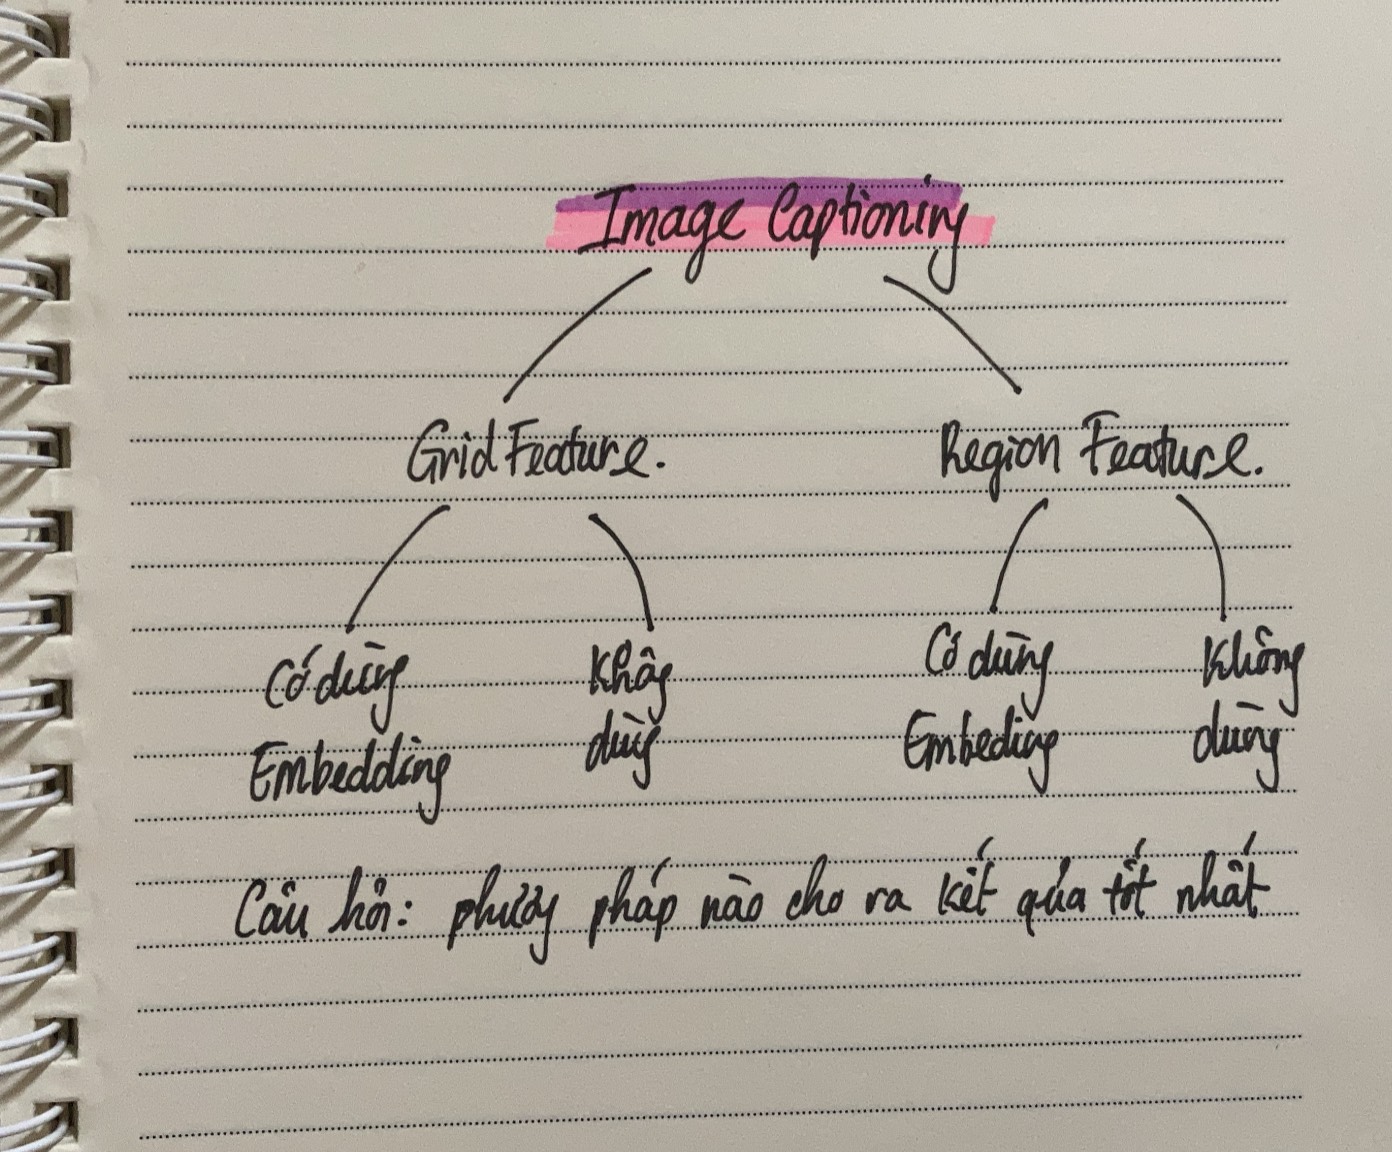 Image Captioning
Grid Feature. Region Feature.
Có dùng Không Có dùng Không
Embedding dùng Embeding dùng
Câu hỏi: phương pháp nào cho ra kết qủa tốt nhất